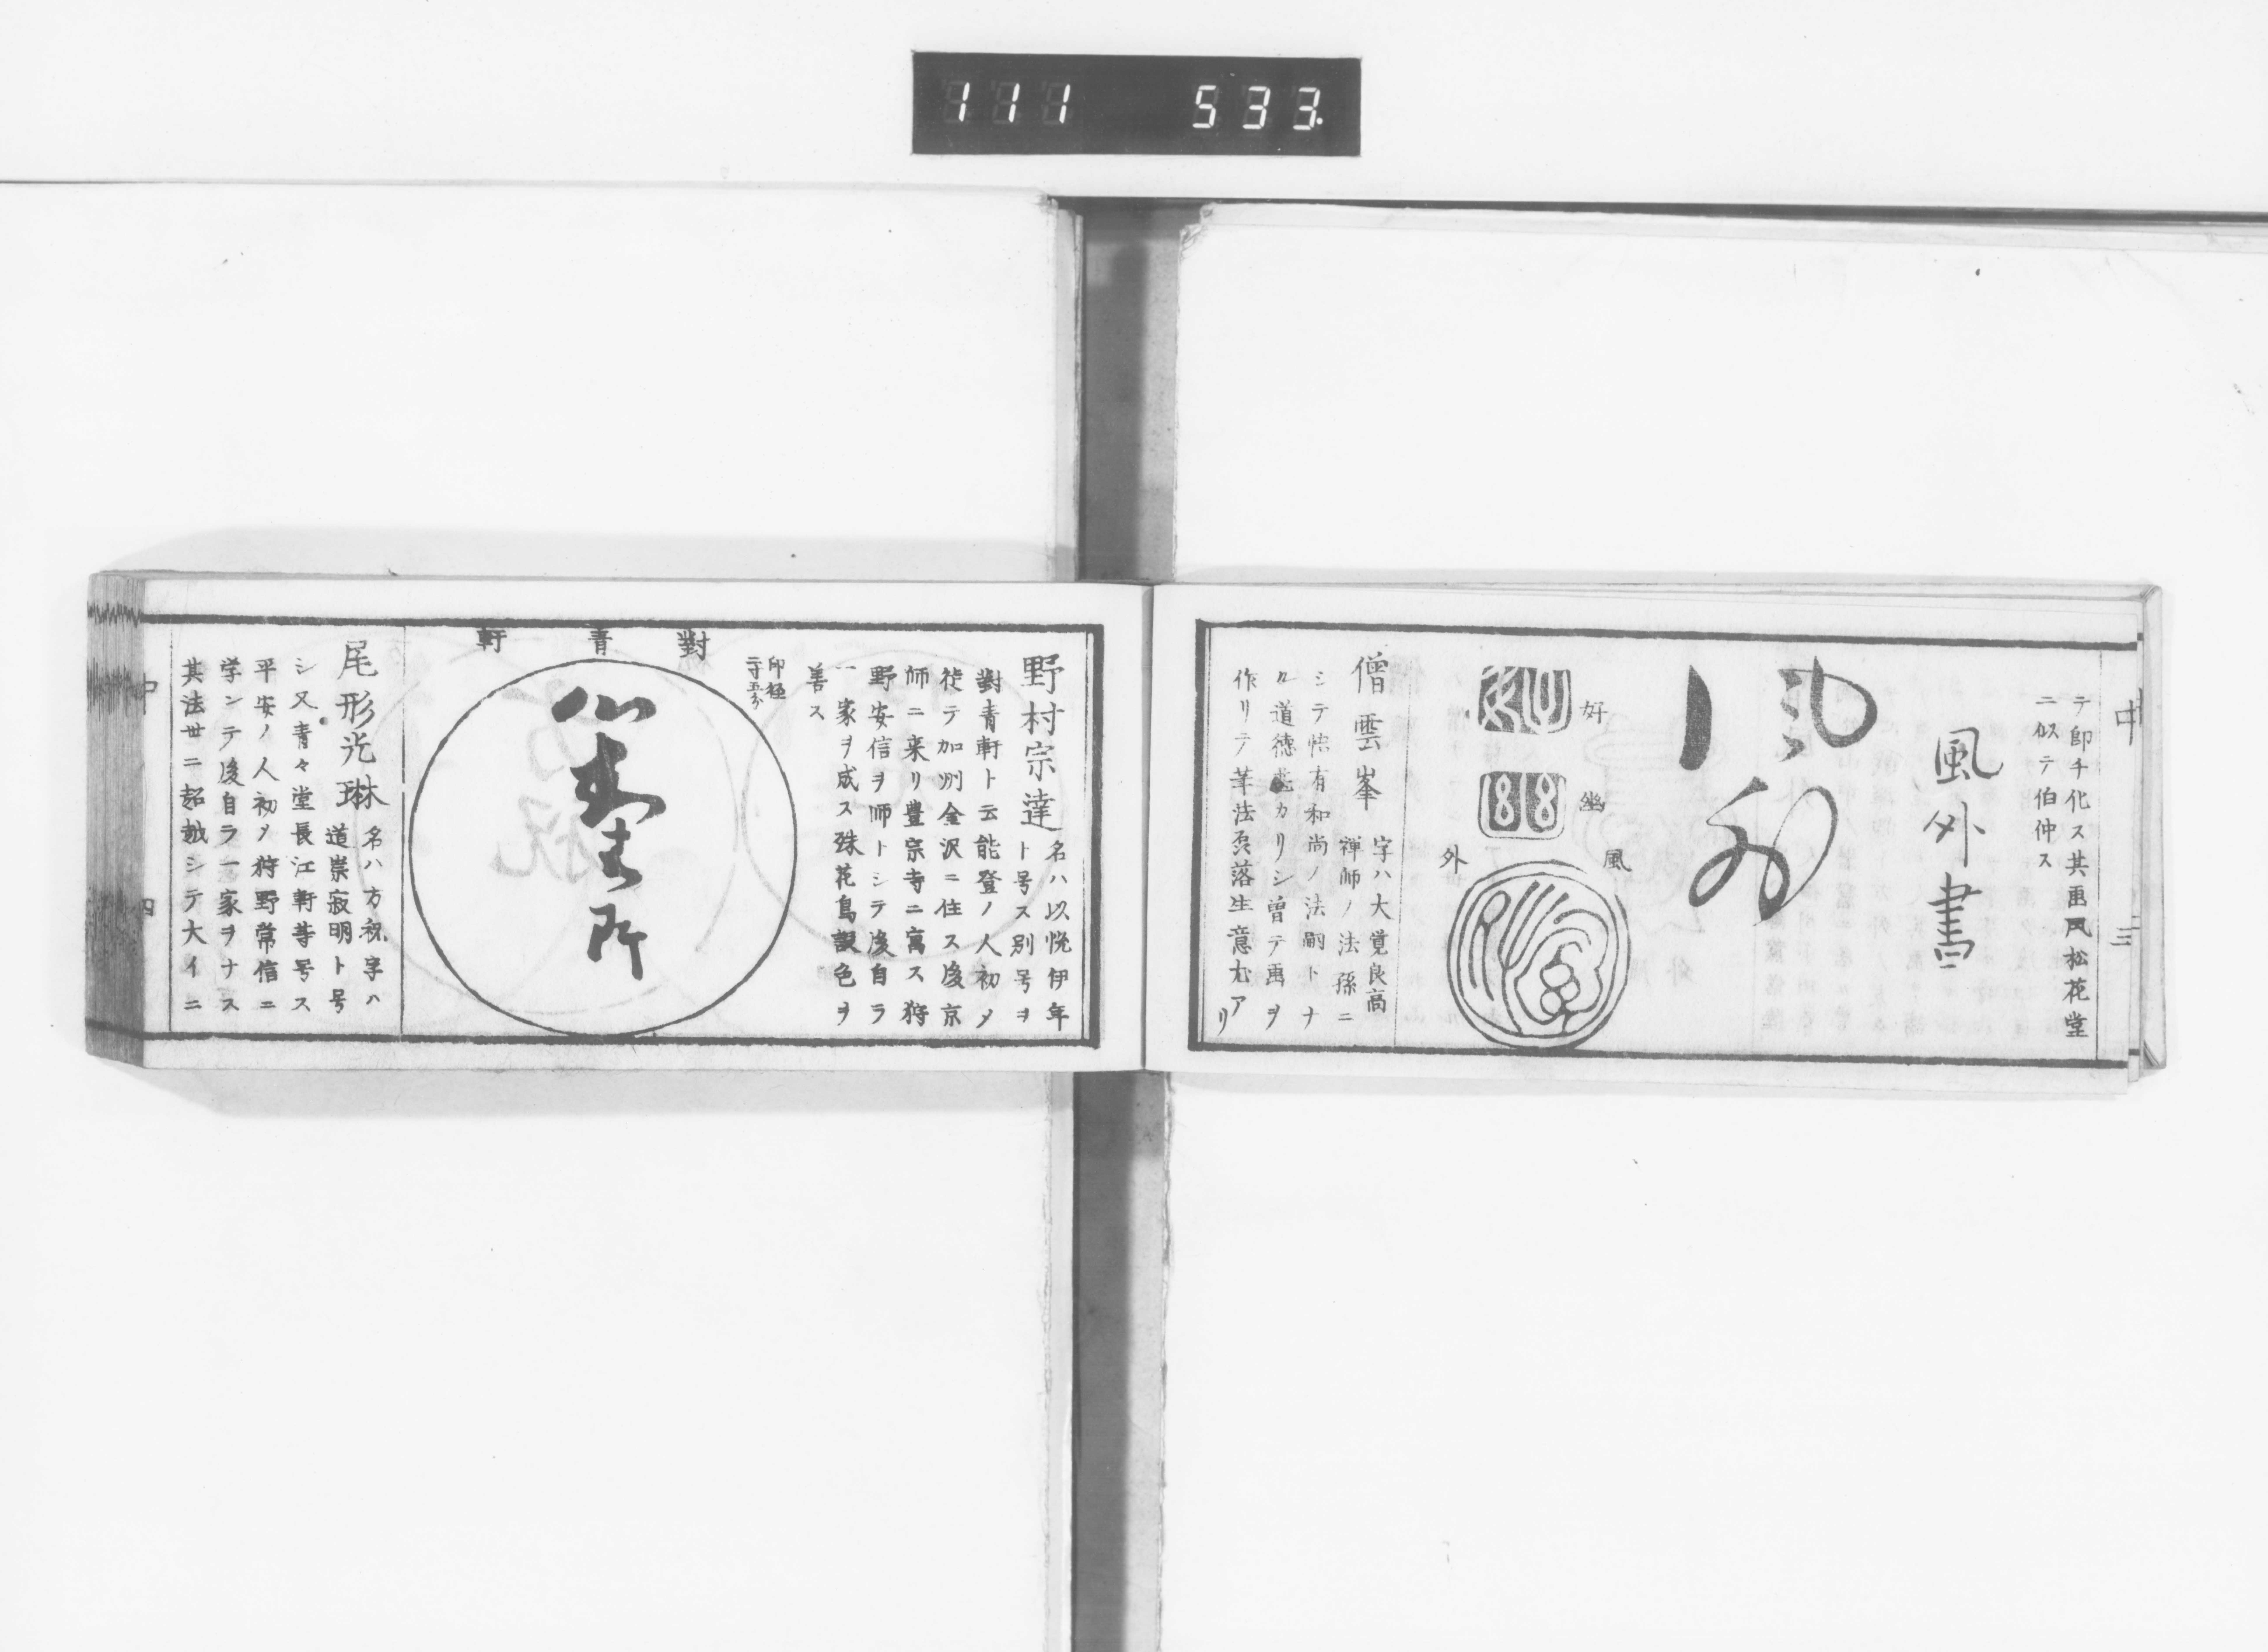 111 533.
中 三
テ即チ化ス其画風松花堂
ニ似テ伯仲ス
風外書
風外
好
幽
風
外
僧雲峯 字ハ大覚良高
禅師ノ法孫ニ
シテ恘有和尚ノ法嗣トナ
ル道徳
カリシ曽テ画ヲ
作リテ筆法
落生意尤アリ
野村宗達 名ハ以悦伊年
ト号ス別号ヲ
對青軒ト云能登ノ人初メ
徒テ加州金沢ニ住ス後京
師ニ来リ豊宗寺ニ寓ス狩
野安信ヲ師トシテ後自ラ
一家ヲ成ス殊花鳥設色ヲ
善ス
印徑
二寸五分
對青軒
尾形光琳 名ハ方祝字ハ
道崇寂明ト号
シ又青々堂長江軒等号ス
平安ノ人初メ狩野常信ニ
学ンテ後自ラ一家ヲナス
其法世ニ超越シテ大イニ
中 四